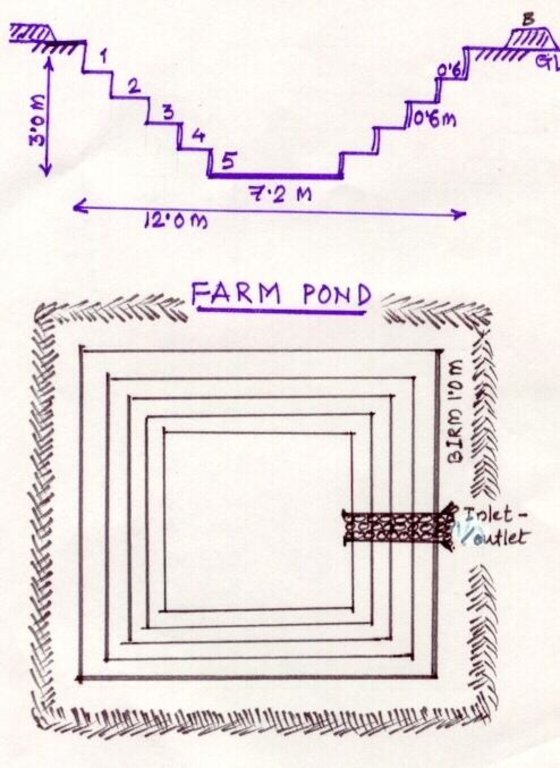 B
GL
1
2
3
4
5
0.6
0.6m
3.0m
7.2 M
12.0m
FARM POND
BIRM 1.0M
Inlet-
outlet